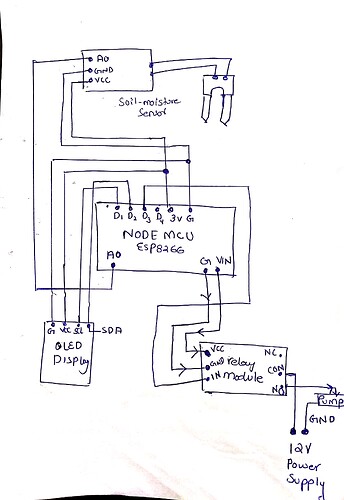 AO
GND
VCC
Soil-moisture
Sensor
D1 D2 D3 D4 3V G
NODE MCU
ESP8266
AO
G VIN
G VCC SCL SDA
OLED
Display
VCC
GND relay
IN module
NC
COM
NO
Pump
GND
12V
Power
Supply